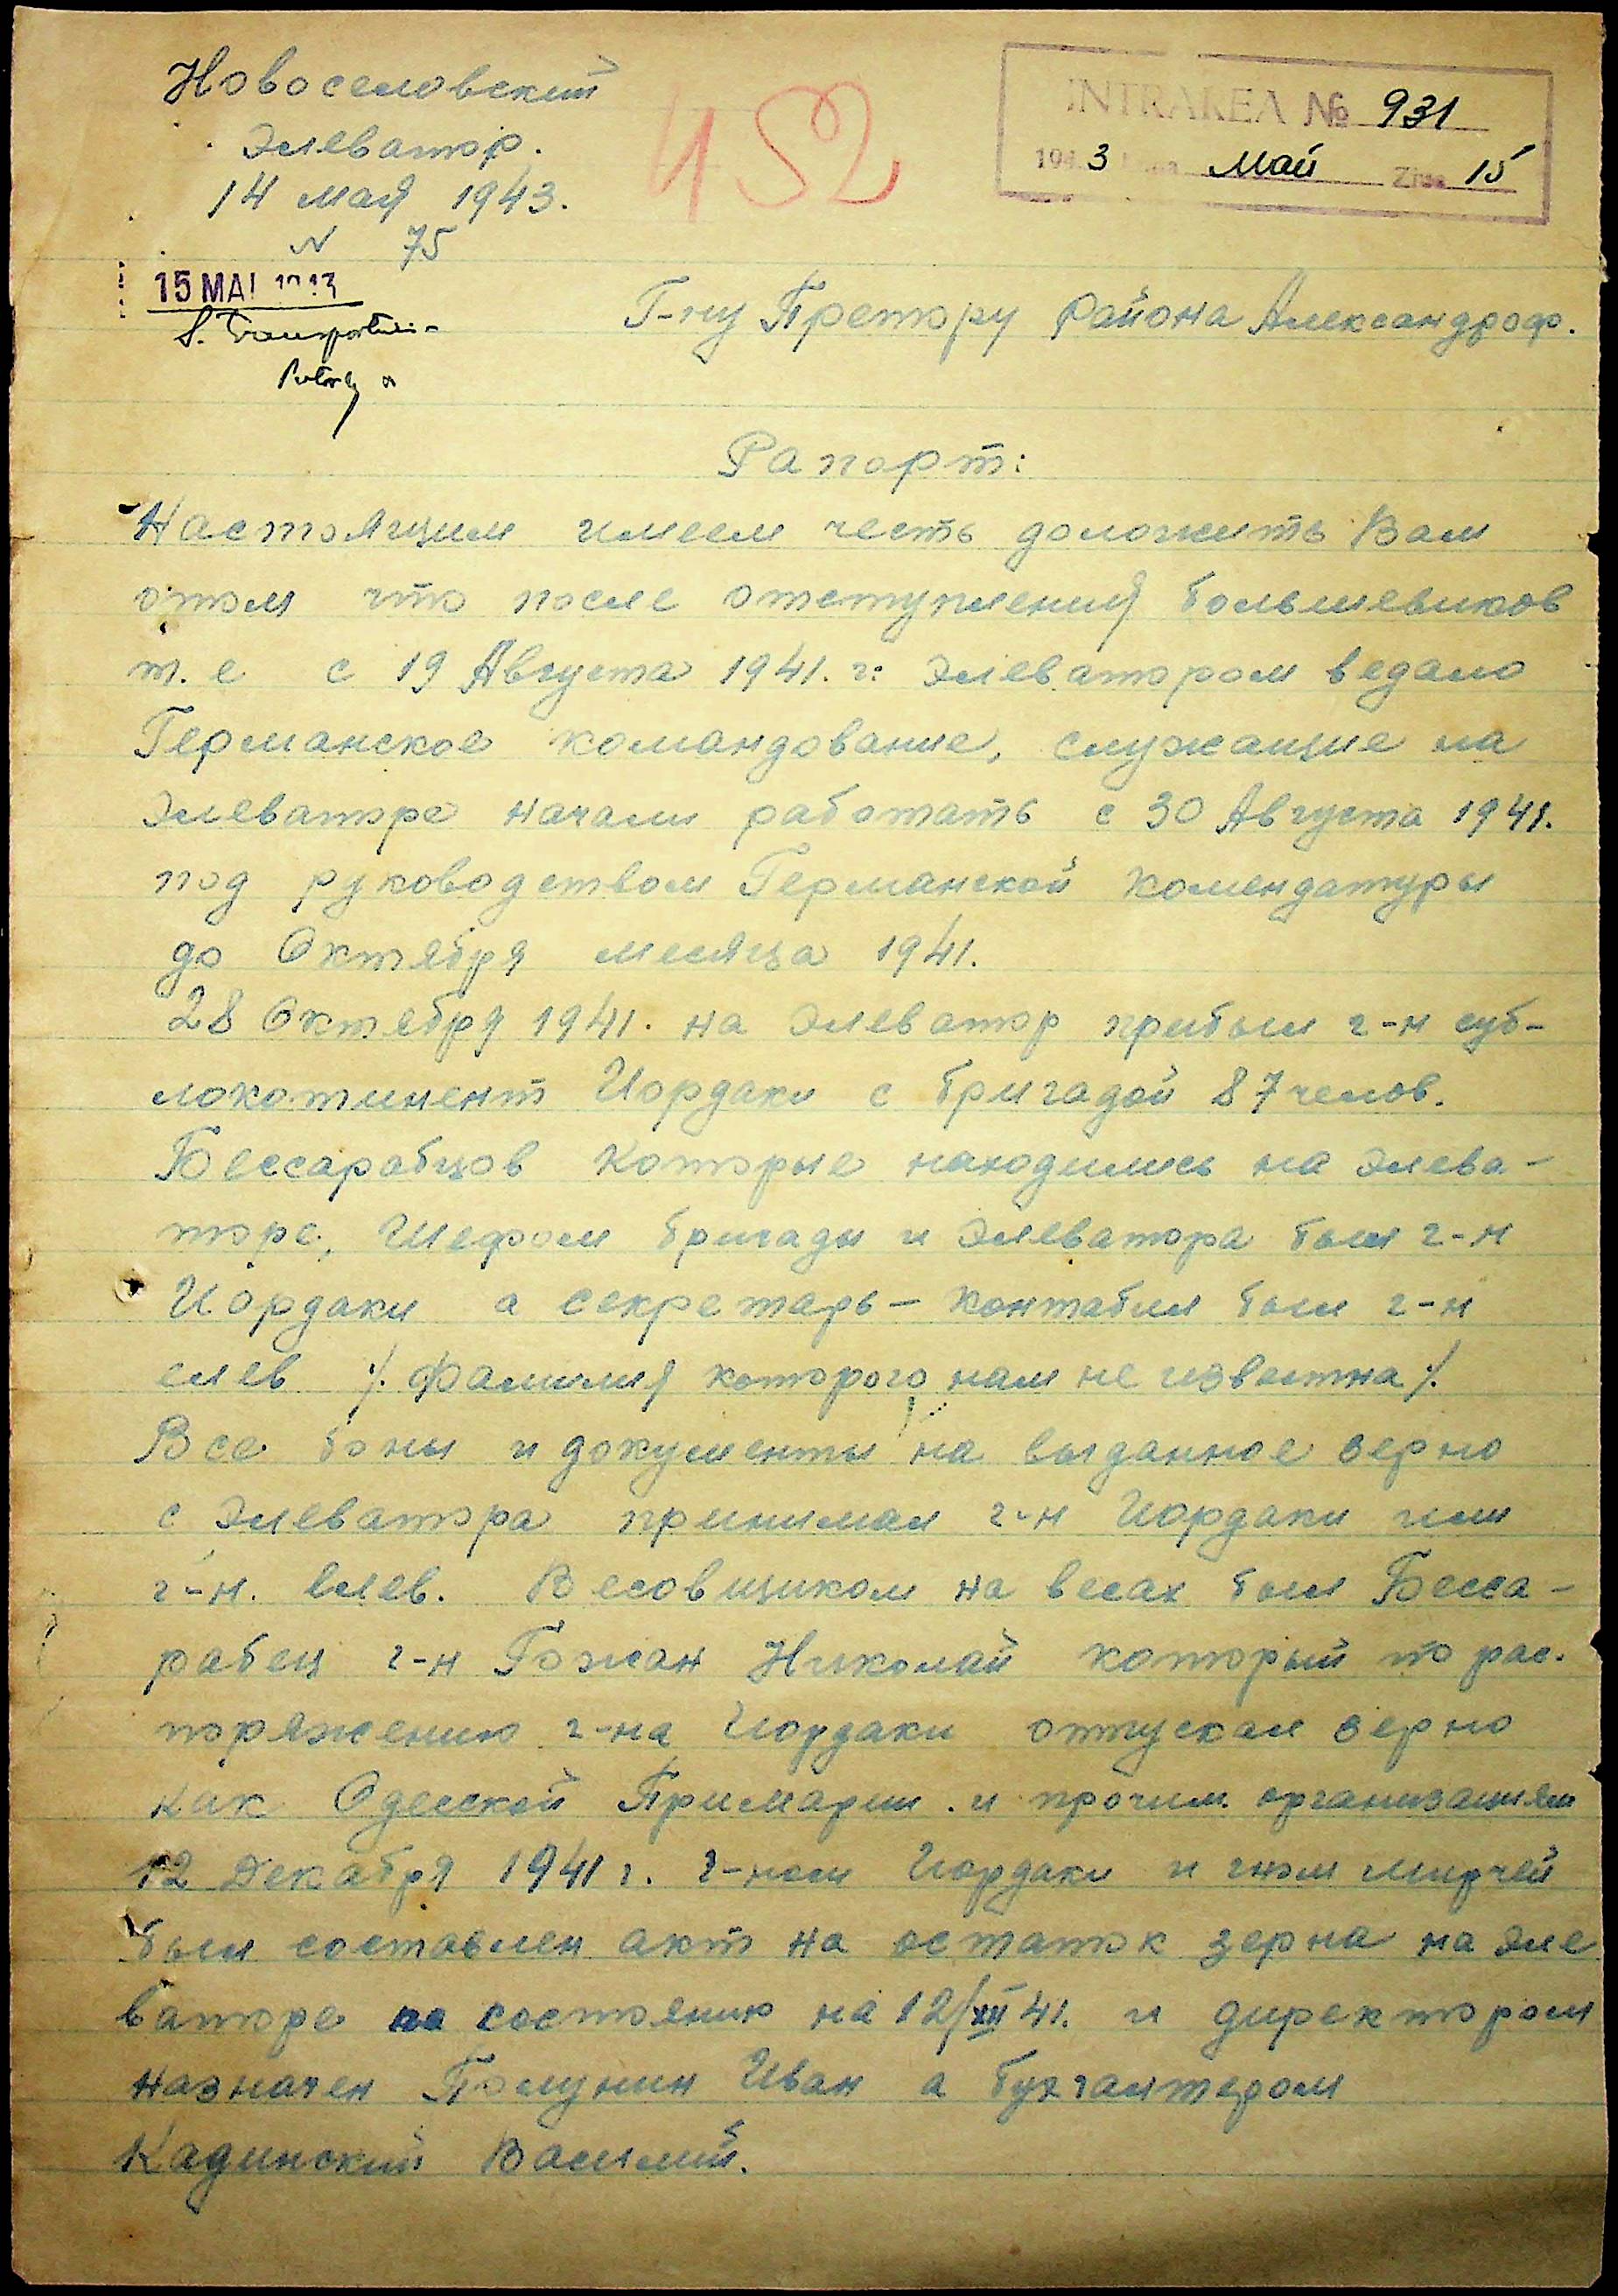 Новоселовский
Элеватор.
14 мая 1943.
N 75
452
INTRAREA № 931
194 3 Май Ziua 15
15 MAI 1943
Г-ну Претору района Александроф.
Рапорт:
Настоящим имеем честь доложить Вам
отом что после отступления большевиков
т. е с 19 Августа 1941. г: Элеватором ведало
Германское командование, служащие на
Элеваторе начали работать с 30 Августа 1941.
под руководством Германской комендатуры
до Октября месяца 1941.
28 Октября 1941. на Элеватор прибыл г-н суб-
локотинент Иордаки с бригадой 87 челов.
Бессарабцов которые находились на Элева-
торе, Шефом бригады и Элеватора был г-н
Иордаки а секретарь - контабил был г-н
елев /. фамилия которого нам не известна /.
Все боны и документы на выданное зерно
с Элеватора принимал г-н Иордаки или
г-н. елев. Весовщиком на весах был Бесса-
рабец г-н Гожан Николай который по рас-
поряжению г-на Иордаки отпускал зерно
как Одесской Примарии и прочим. организациям
12 Декабря 1941 г. г-ном Иордаки и гном Мирчей
был составлен акт на остаток зерна на Эле
ваторе по состоянию на 12/XII 41. и директором
назначен Полунин Иван а бухгалтером
Кадинский Василий.